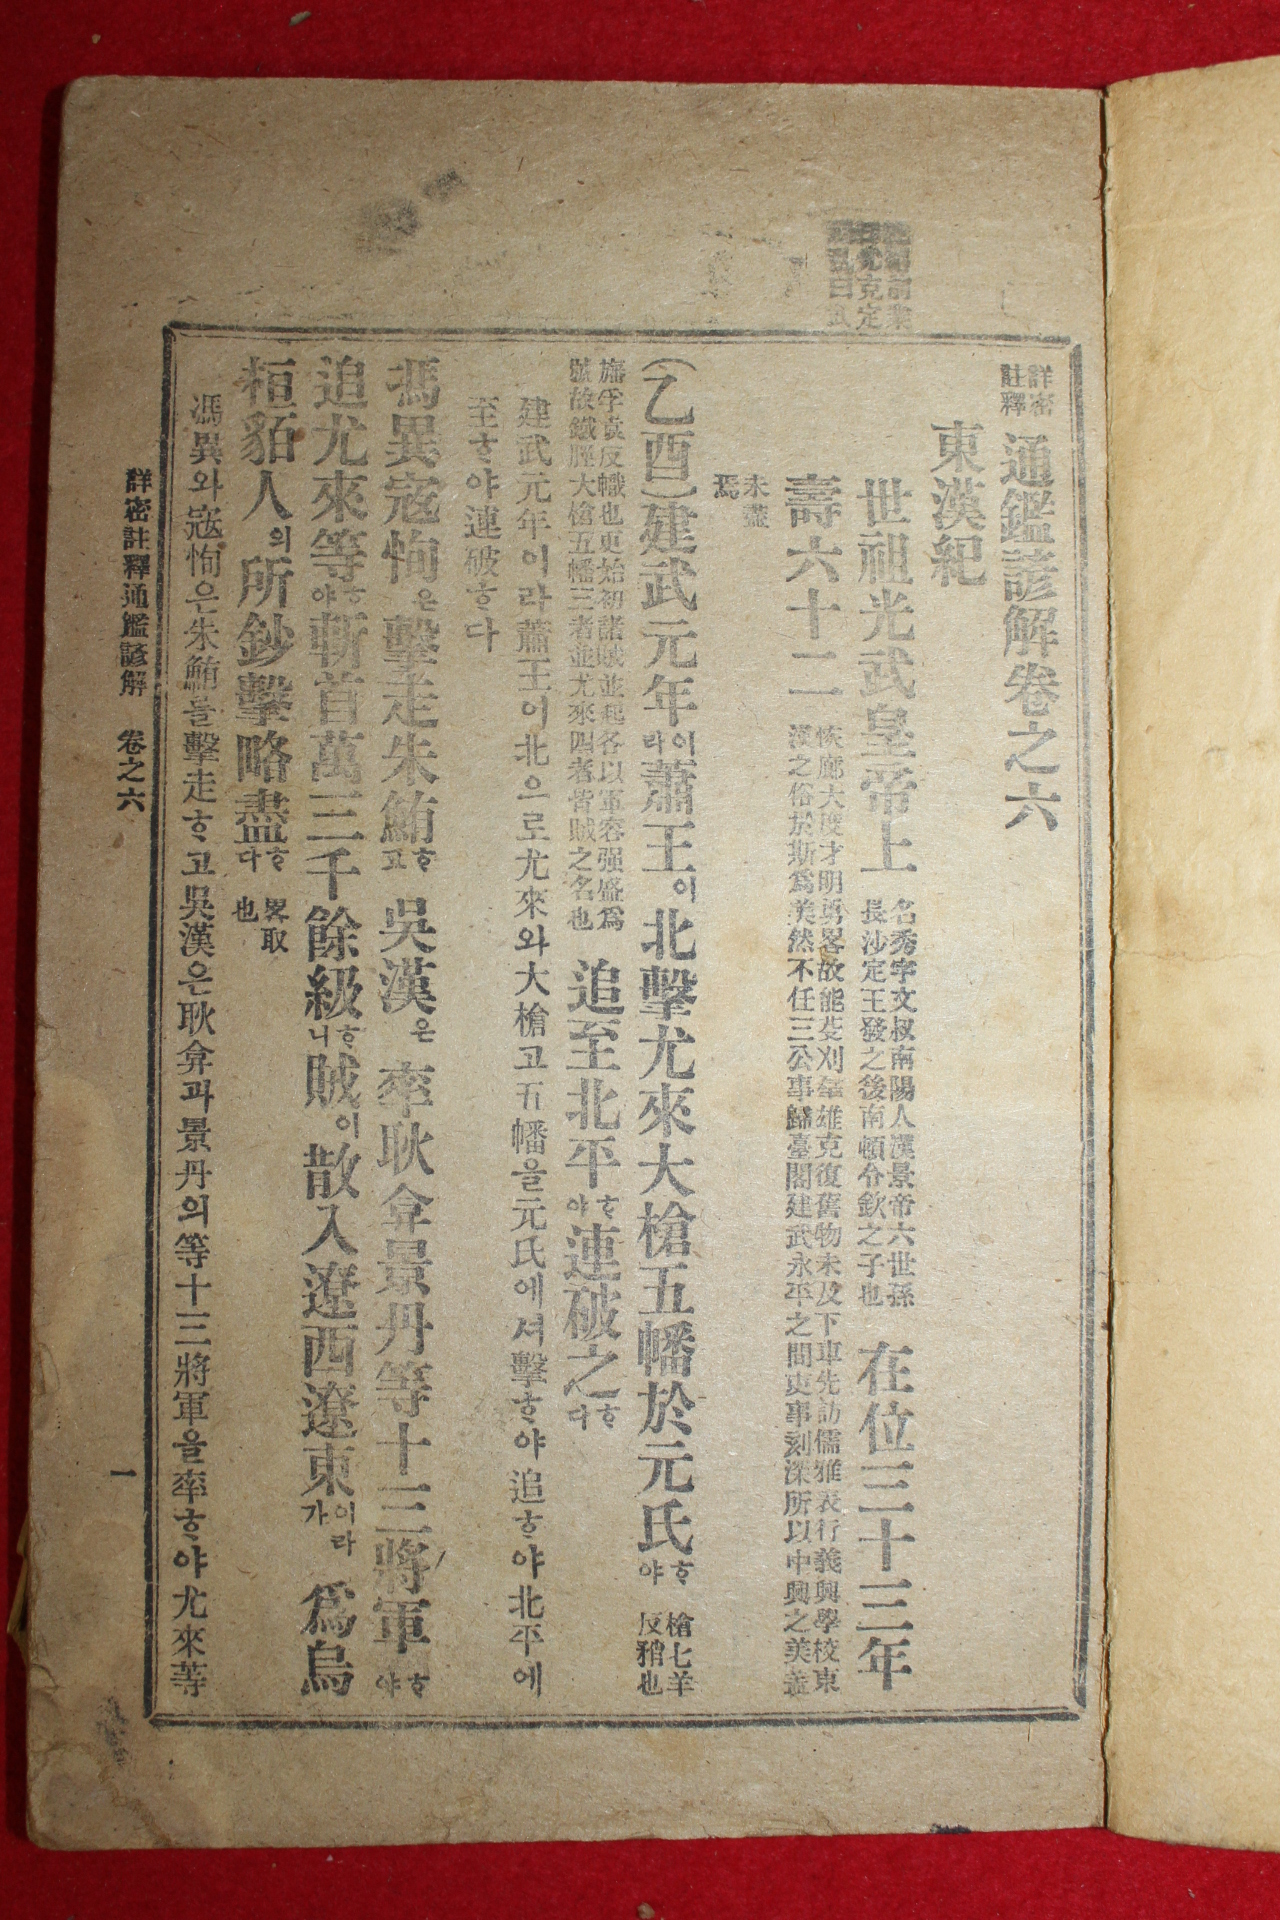 詳密註釋 通鑑諺解卷之六
東漢紀
世祖光武皇帝上 名秀字文叔南陽人漢景帝六世孫長沙定王發之後南頓令欽之子也 在位三十三年
壽六十二 恢廓大度才明勇畧故能芟刈羣雄克復舊物未及下車先訪儒雅表行義興學校東漢之俗於斯爲美然不任三公事歸臺閣建武永平之間吏事刻深所以中興之美蓋
未盡焉
(乙酉)建武元年이라蕭王이北擊尤來大槍五幡於元氏ᄒᆞ야 槍七羊反矟也
旛孚袁反幟也更始初諸賊並起各以軍容强盛爲號故鐵脛大槍五幡三者並尤來四者皆賊之名也 追至北平ᄒᆞ야連破之ᄒᆞ다
建武元年이라蕭王이北으로尤來와大槍고五幡을元氏에셔擊ᄒᆞ야追ᄒᆞ야北平에
至ᄒᆞ야連破ᄒᆞ다
馮異寇恂은擊走朱鮪ᄒᆞ고 吳漢은率耿弇景丹等十三將軍ᄒᆞ야
追尤來等ᄒᆞ야斬首萬三千餘級ᄒᆞ니賊이散入遼西遼東이라가 爲烏
桓貊人의所鈔擊略盡ᄒᆞ다 畧取也
馮異와寇恂은朱鮪를擊走ᄒᆞ고吳漢은耿弇과景丹의等十三將軍을率ᄒᆞ야尤來等
詳密註釋通鑑諺解 卷之六 一